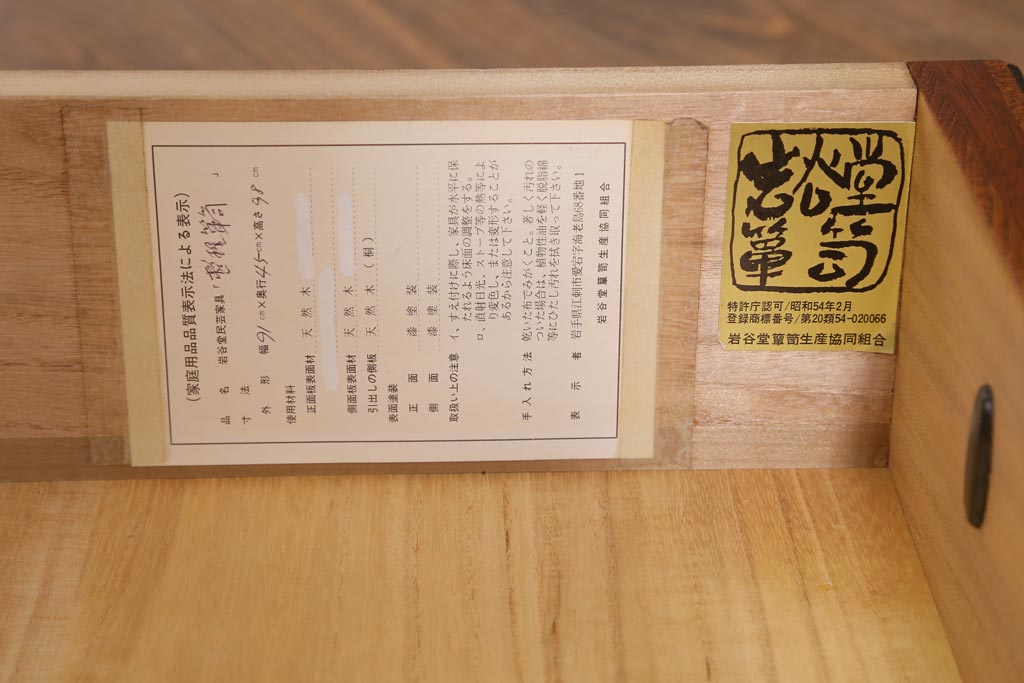 (家庭用品品質表示法による表示)
品名 岩谷堂民芸家具「 箪笥 」
寸法
外形 幅 91 cm×奥行 45 cm×高さ 98 cm
使用材料
正面板表面材 天然木
側面板表面材 天然木
引出しの側板 天然木(桐)
表面塗装
正面 漆塗装
側面 漆塗装
取扱い上の注意 イ、すえ付けに際し、家具が水平に保
たれるよう床面の調整をする。
ロ、直射日光、ストーブ等の熱等によ
り変色し、または変形することが
あるから注意して下さい。
手入れ方法 乾いた布でみがくこと。著しく汚れの
ついた場合は、植物性油を軽く脱脂綿
等にひたし汚れを拭き取って下さい。
表示者 岩手県江刺市愛宕字海老島68番地1
岩谷堂簞笥生産協同組合
岩谷堂
簞笥
特許庁認可/昭和54年2月
登録商標番号/第20類54-020066
岩谷堂簞笥生産協同組合